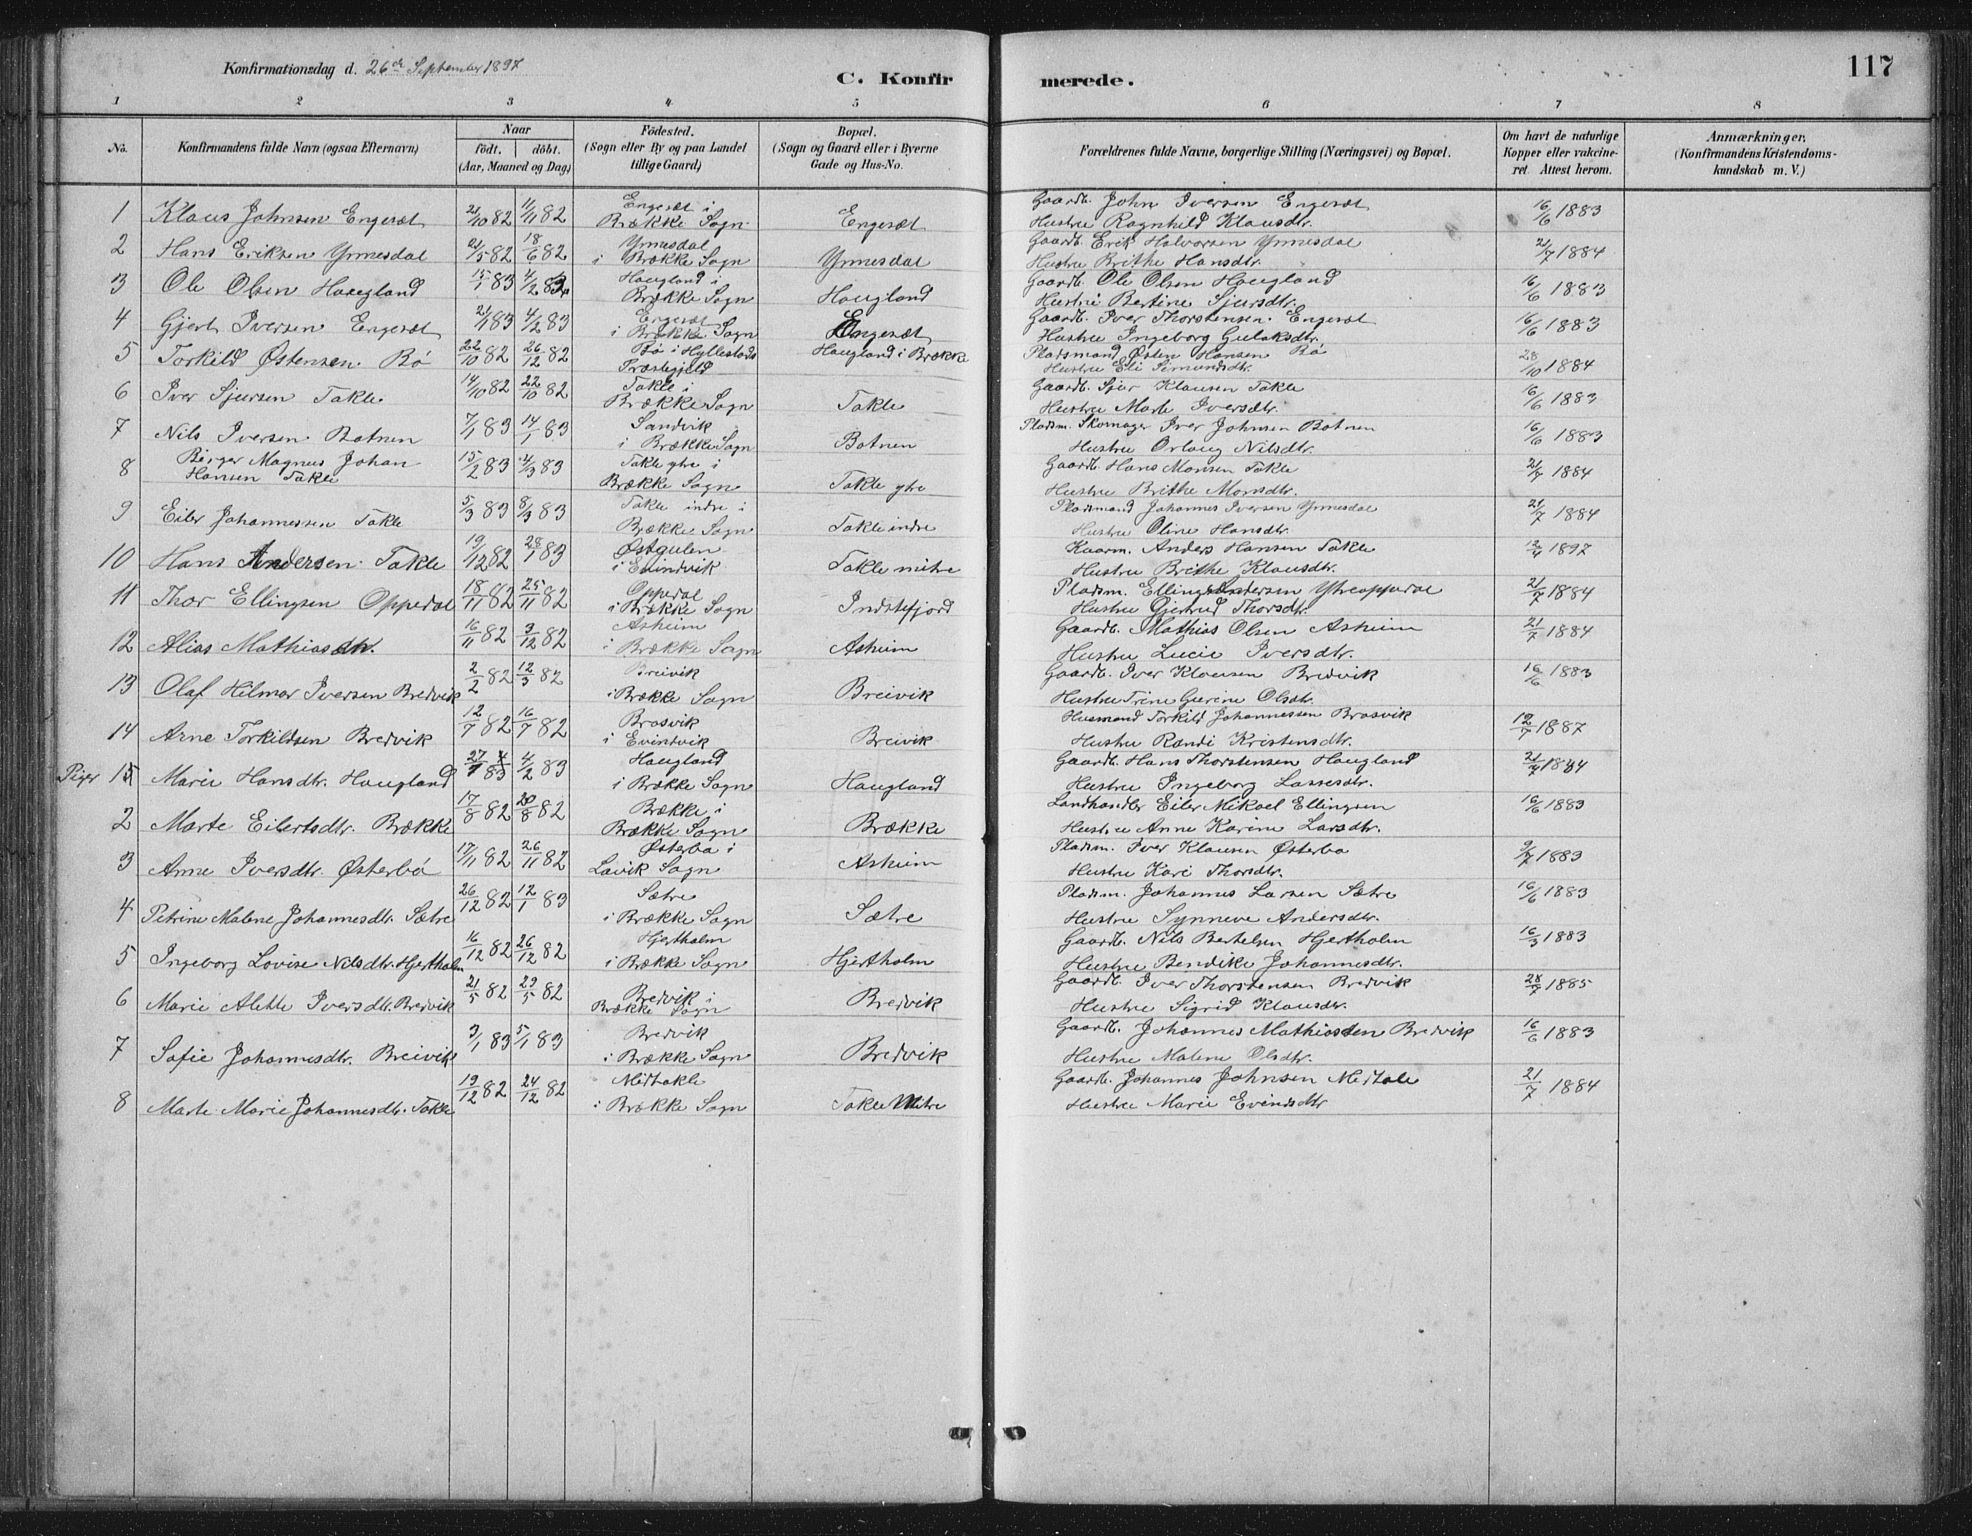 Konfirmationsdag d. 26de September 1897
C. Konfirmerede.
117
1 2 3 4 5 6 7 8
No.
Konfirmandens fulde Navn (ogsaa Efternavn)
Naar
født. | döbt.
(Aar, Maaned og Dag)
Födested.
(Sogn eller By og paa Landet
tillige Gaard)
Bopæl.
(Sogn og Gaard eller i Byerne
Gade og Hus-No.
Forældrenes fulde Navne, borgerlige Stilling (Næringsvei) og Bopæl.
Om havt de naturlige
Kopper eller vakcine-
ret Attest herom.
Anmærkninger.
(Konfirmandens Kristendoms-
kundskab m. V.)
1 Klaus Johnsen Engesæt 21/10 82 11/11 82 Engesæt i Brække Sogn Engesæt Gaardb. John Iversen Engesæt 16/6 1883
Hustru Ragnhild Klausdtr.
2 Hans Eriksen Ynnesdal 21/5 82 18/6 82 Ynnesdal i Brække Sogn Ynnesdal Gaardb. Erik Halvorsen Ynnesdal 21/7 1884
Hustru Brithe Hansdtr.
3 Ole Olsen Haugland 15/1 83 4/2 83 Haugland i Brække Sogn Haugland Gaardb. Ole Olsen Haugland 16/6 1883
Hustru Bertine Sjursdtr.
4 Gjert Iversen Engesæt 21/1 83 4/2 83 Engesæt i Brække Sogn Engesæt Gaardb. Iver Thorstensen Engesæt 16/6 1883
Hustru Ingeborg Gulaksdtr.
5 Torkild Østensen Bö 22/10 82 26/12 82 Bö i Hyllestad Præstegjeld Haugland i Brække Pladsmand Østen Hansen Bö 28/10 1884
Hustru Eli Simundsdtr.
6 Iver Sjursen Takle 14/10 82 22/10 82 Takle i Brække Sogn Takle Gaardb. Sjur Klausen Takle 16/6 1883
Hustru Marte Iversdtr.
7 Nils Iversen Botnen 7/1 83 14/1 83 Sandvik i Brække Sogn Botnen Pladsm. Skomager Iver Johnsen Botnen 16/6 1883
Hustru Orlaug Nilsdtr.
8 Birger Magnus Johan Hansen Takle 15/2 83 4/3 83 Takle ytre i Brække Sogn Takle ytre Gaardb. Hans Monsen Takle 21/7 1884
Hustru Brithe Monsdtr.
9 Eiler Johannessen Takle 5/3 83 8/3 83 Takle indre i Brække Sogn Takle indre Pladsmand Johannes Iversen Ynnesdal 21/7 1884
Hustru Oline Hansdtr.
10 Hans Andersen Takle 19/12 82 28/1 83 Østgulen i Evindvik Takle mitre Kaarm. Anders Hansen Takle 12/4 1897
Hustru Brithe Klausdtr.
11 Thor Ellingsen Oppedal 18/11 82 25/11 82 Oppedal i Brække Sogn Indstefjord Pladsm. Elling Andersen Ytreoppedal 21/7 1884
Hustru Gjertrud Thorsdtr.
12 Alias Mathiasdtr. 16/11 82 3/12 82 Asheim i Brække Sogn Asheim Gaardb. Mathias Olsen Asheim 21/7 1884
Hustru Lucie Iversdtr.
13 Olaf Hilmar Iversen Bredvik 2/2 82 12/3 82 Breivik i Brække Sogn Breivik Gaardb. Iver Klausen Bredvik 16/6 1883
Hustru Trine Gurine Olsdtr.
14 Arne Torkildsen Bredvik 12/7 82 16/7 82 Brosvik i Evindvik Breivik Husmand Torkild Johannessen Brosvik 12/7 1887
Hustru Randi Kristensdtr.
Piger 1 Marie Hansdtr. Haugland 27/1 83 4/2 83 Haugland i Brække Sogn Haugland Gaardb. Hans Thorstensen Haugland 21/7 1884
Hustru Ingeborg Lassesdtr.
2 Marte Eilertsdtr. Brække 17/8 82 20/8 82 Brække i Brække Sogn Brække Landhandler Eiler Mikael Ellingsen 16/6 1883
Hustru Anne Karine Larsdtr.
3 Anne Iversdtr. Østerbö 17/11 82 26/11 82 Østerbø i Lavik Sogn Asheim Pladsm. Iver Klausen Østerbø 9/7 1883
Hustru Kari Thorsdtr.
4 Petrine Malene Johannesdtr. Sætre 26/12 82 12/1 83 Sætre i Brække Sogn Sætre Pladsm. Johannes Larsen Sætre 16/6 1883
Hustru Synneve Andersdtr.
5 Ingeborg Lovise Nilsdtr. Hjertholm 16/12 82 26/12 82 Hjertholm i Brække Sogn Hjertholm Gaardb. Nils Bertelsen Hjertholm 16/3 1883
Hustru Bendike Johannesdtr.
6 Marie Alette Iversdtr. Bredvik 21/5 82 29/5 82 Bredvik i Brække Sogn Bredvik Gaardb. Iver Thorstensen Bredvik 28/7 1885
Hustru Sigrid Klausdtr.
7 Sofie Johannesdtr. Breivik 3/1 83 5/1 83 Bredvik i Brække Sogn Bredvik Gaardb. Johannes Mathiassen Bredvik 16/6 1883
Hustru Malene Olsdtr.
8 Marte Marie Johannesdtr. Takle 19/12 82 24/12 82 Midtakle i Brække Sogn Takle Mitre Gaardb. Johannes Johnsen 21/7 1884
Hustru Marie Evindsdtr